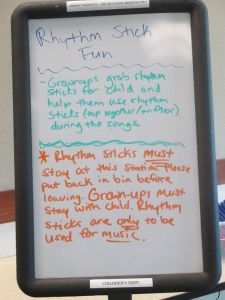 Rhythm Stick
Fun
- Grownups grab rhythm
sticks for child and
help them use rhythm
sticks (tap together/on floor)
during the songs.
* Rhythm sticks must
stay at this station. Please
put back in bin before
leaving. Grown-ups must
stay with child. Rhythm
sticks are only to be
used for music.
CHILDREN'S DEPT.